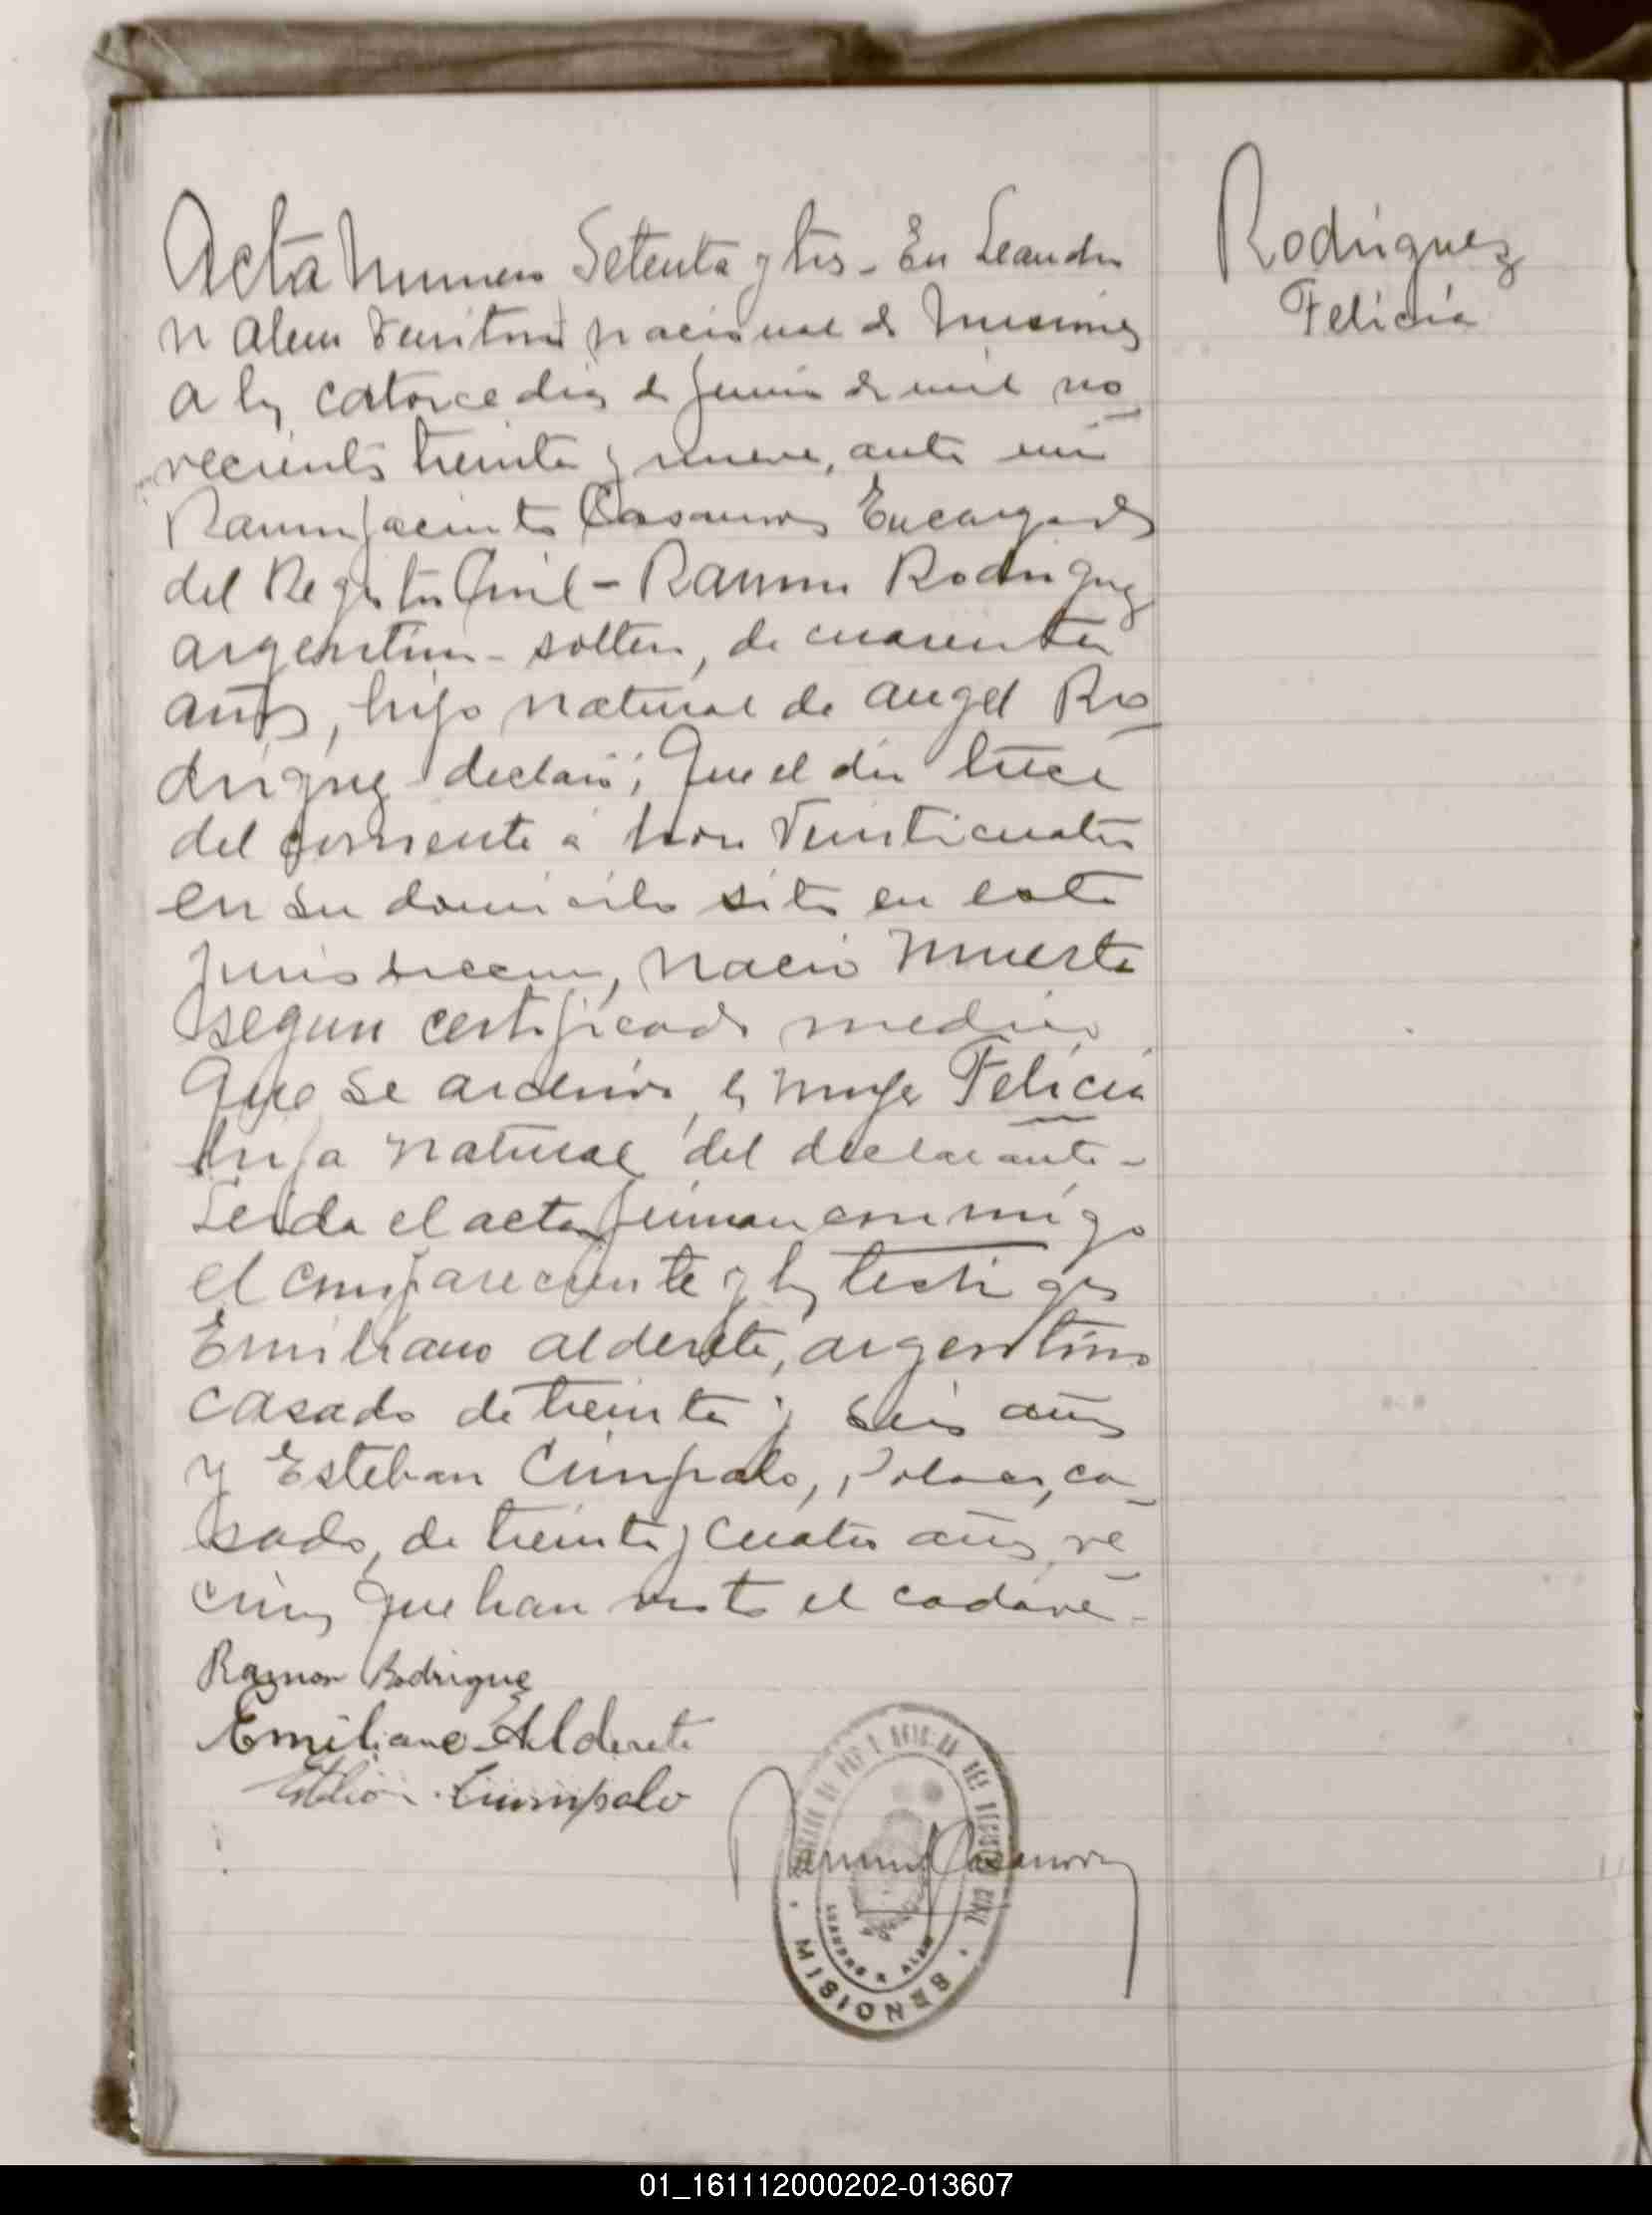 Rodriguez
Felicia
Acta Numero Setenta y tres - En Leandro
N Alem Territorio nacional de Misiones
a los catorce dias de Junio de mil no
vecientos treinta y nueve, ante mi
Ramon Jacinto Casanova Encargado
del Registro Civil - Ramon Rodriguez
argentino - soltero, de cuarenta
años, hijo natural de Angel Ro
driguez declaró; Que el dia trece
del corriente a hora Veinticuatro
en su domicilio sito en esta
Jurisdiccion, nacio muerta
segun certificado medico
que se archiva, la mujer Felicia
hija natural del declarante -
Leida el acta firman conmigo
el compareciente y los testigos
Emiliano Alderete, argentino
casado de treinta y seis años
y Esteban Cimpalo, Polaco, ca
sado, de treinta y cuatro años, ve
cinos que han visto el cadaver -
Ramon Rodrigue
Emiliano Alderete
Cimpalo
Ramon J Casanova
DEL REGISTRO CIVIL
LEANDRO N ALEM
MISIONES
01_161112000202-013607